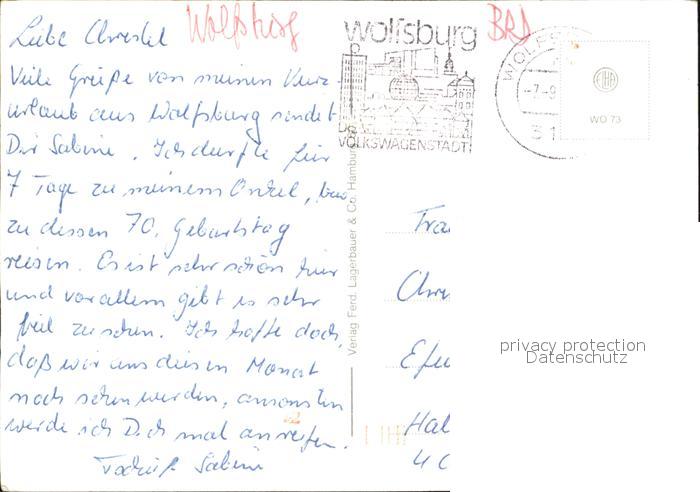 Liebe Christel
Wolfsburg
BRD
wolfsburg
DIE
VOLKSWAGENSTADT
WO 73
Viele Grüße von meinen Kurz-
urlaub aus Wolfsburg sendet
Dir Sabine. Ich durfte für
7 Tage zu meinem Onkel, bzw
zu dessen 70. Geburtstag
reisen. Es ist sehr schön hier
und vor allem gibt es sehr
viel zu sehen. Ich hoffe doch,
daß wir uns diesen Monat
noch sehen werden, ansonsten
werde ich Dich mal anrufen.
Tschüß Sabine
Verlag Ferd. Lagerbauer & Co. Hamburg
Fra
Chri
Efu
Hal
40
privacy protection
Datenschutz